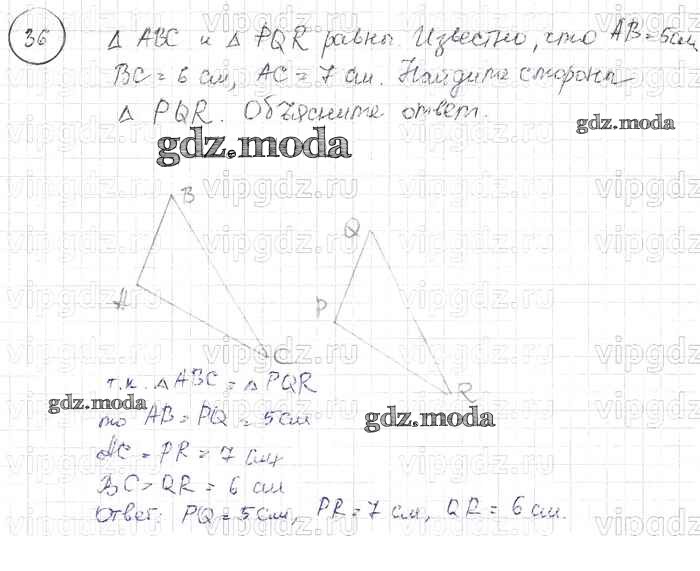 36
Δ ABC и Δ PQR равны. Известно, что AB=5см,
BC = 6 см, AC = 7 см. Найдите стороны
Δ PQR. Объясните ответ.
gdz.moda
gdz.moda
B
Q
A
P
C
R
т.к. Δ ABC = Δ PQR
gdz.moda
gdz.moda
то AB = PQ = 5 см
AC = PR = 7 см
BC = QR = 6 см
Ответ: PQ = 5 см, PR = 7 см, QR = 6 см.
vipgdz.ru